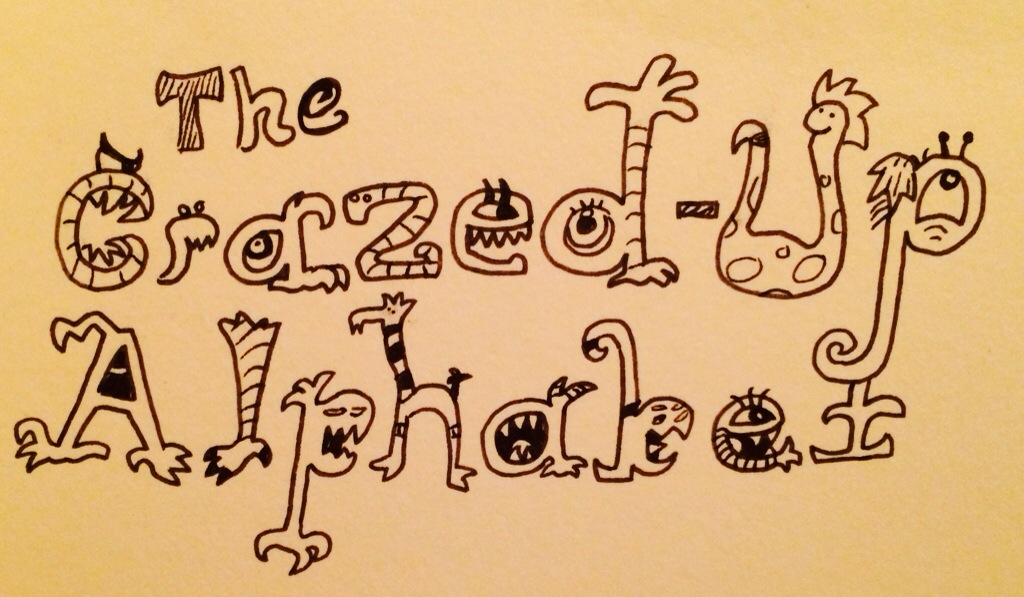 The
Crazed-Up
Alphabet